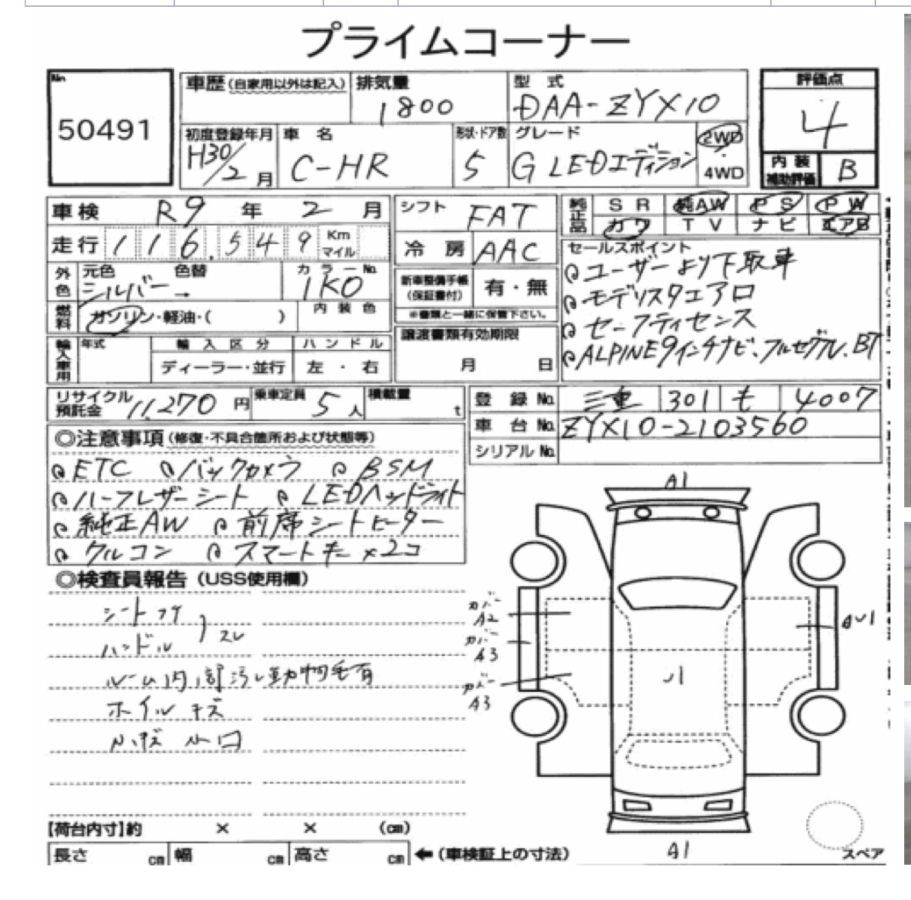 プライムコーナー
No 50491
車歴(自家用以外は記入) 排気量 1800 型式 DAA-ZYX10 評価点 4
初度登録年月 H30/2月 車名 C-HR 形状・ドア数 5 グレード G LEDエディション 2WD・4WD 内装補助評価 B
車検 R9年 2月 シフト FAT 純正品 SR 純AW PS PW
カワ TV ナビ エアB
走行 116,549 Km マイル 冷房 AAC
外色 元色 シルバー 色替 → カラーNo. 1K0
新車整備手帳(保証書付) 有・無
※書類と一緒に保管下さい。
燃料 ガソリン・軽油・( ) 内装色
セールスポイント
ユーザーより下取車
モデリスタエアロ
セーフティセンス
ALPINE9インチナビ.フルセグTV.BT
譲渡書類有効期限 月 日
輸入車用 年式 輸入区分 ディーラー・並行 ハンドル 左・右
リサイクル預託金 11,270円 乗車定員 5人 積載量 t
登録No. 三重 301 も 4007
車台No. ZYX10-2103560
シリアルNo.
◎注意事項(修復・不具合箇所および状態等)
ETC バックカメラ BSM
ハーフレザーシート LEDヘッドライト
純正AW 前席シートヒーター
クルコン スマートキー×2コ
◎検査員報告(USS使用欄)
シート
ハンドル スレ
ルーム内部汚レ動物毛有
ホイルキズ
小キズ 小凹
A1
カバー A2
カバー A3
カバー A3
A1
【荷台内寸】約 × × (cm)
長さ cm 幅 cm 高さ cm ←(車検証上の寸法)
スペア